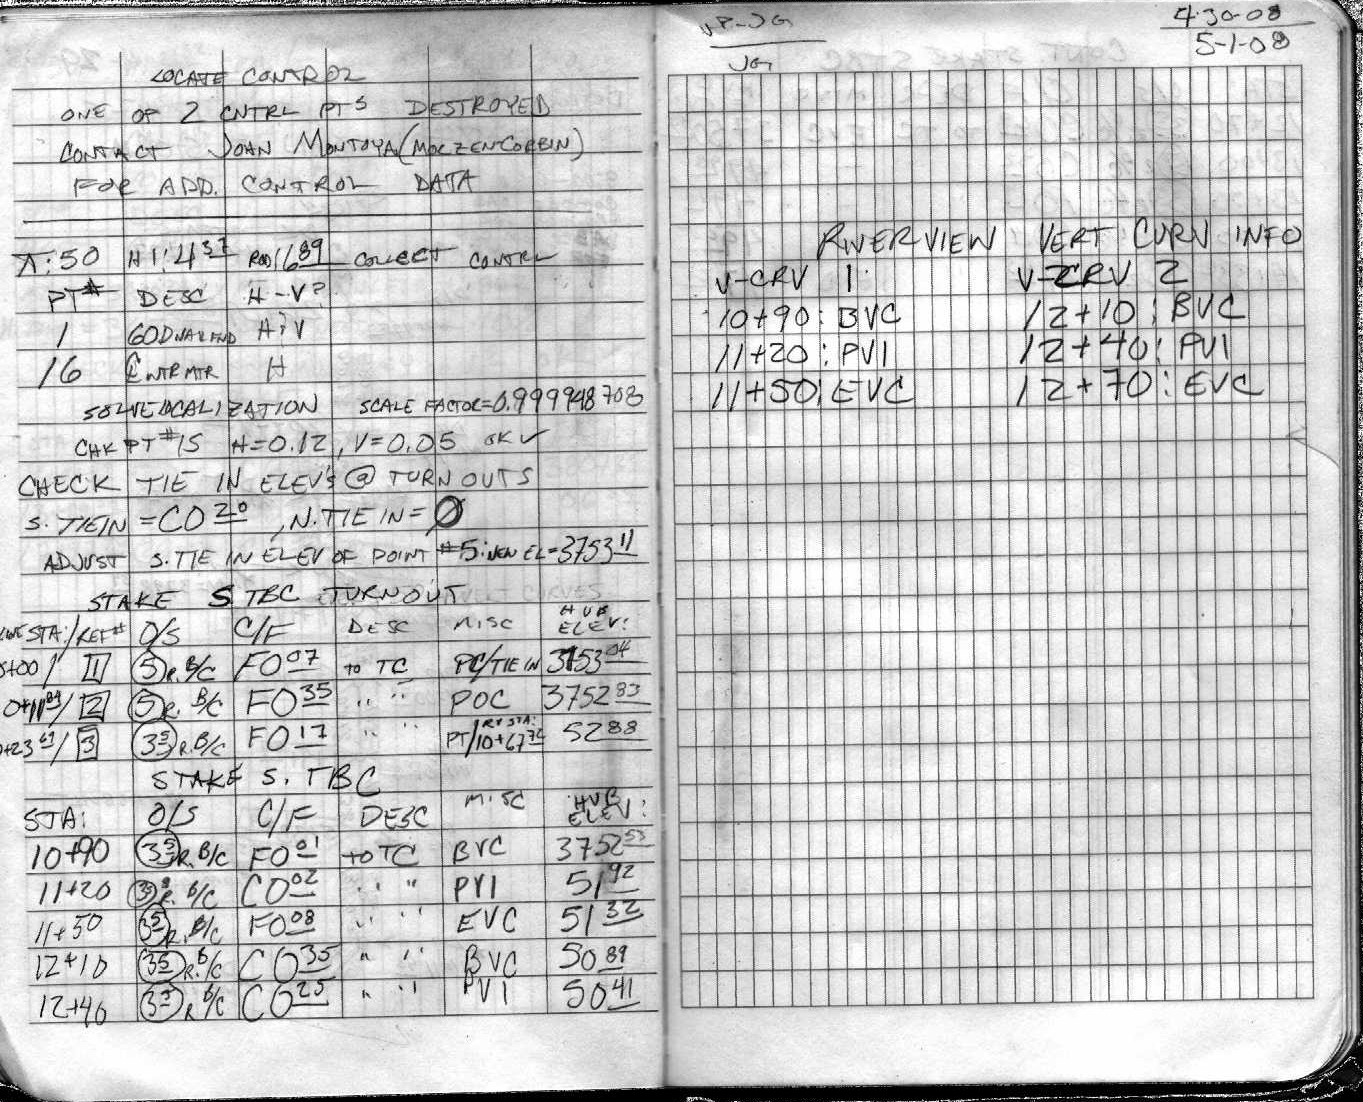 LOCATE CONTROL
ONE OF 2 CNTRL PTS DESTROYED
CONTACT JOHN MONTOYA (MOLZENCORBIN)
FOR ADD. CONTROL DATA
⊼:50 HI:4 37 ROD:6 89 COLLECT CONTRL
PT# DESC H-V?
1 GODWAYEND H:V
16 CNTRMTR H
SOLVE LOCALIZATION SCALE FACTOR=0.999948708
CHK PT #15 H=0.12, V=0.05 OK ✓
CHECK TIE IN ELEV'S @ TURNOUTS
S. TIE IN = C0 20, N. TIE IN = Ø
ADJUST S. TIE IN ELEV OF POINT #5: NEW EL=3753 11
STAKE S TBC TURNOUT
STA:/REF# O/S C/F DESC MISC HUB ELEV:
0+00/ 1 5 R. B/C F0 07 to TC PC/TIE IN 3753 04
0+11 84/ 2 5 R. B/C F0 35 " " POC 3752 83
0+23 67/ 3 3 5 R. B/C F0 17 " " PT/RV STA: 10+67 72 52 88
STAKE S. TBC
STA: O/S C/F DESC MISC HUB ELEV:
10+90 3 5 R. B/C F0 01 to TC BVC 3752 53
11+20 3 5 R. B/C C0 02 " " PVI 51 92
11+50 3 5 R. B/C F0 08 " " EVC 51 32
12+10 3 5 R. B/C C0 35 " " BVC 50 89
12+40 3 5 R B/C C0 25 " " PVI 50 41
JG
4-30-08
5-1-08
RIVERVIEW VERT CURV INFO
V-CRV 1: V-CRV 2
10+90: BVC 12+10: BVC
11+20: PVI 12+40: PVI
11+50: EVC 12+70: EVC